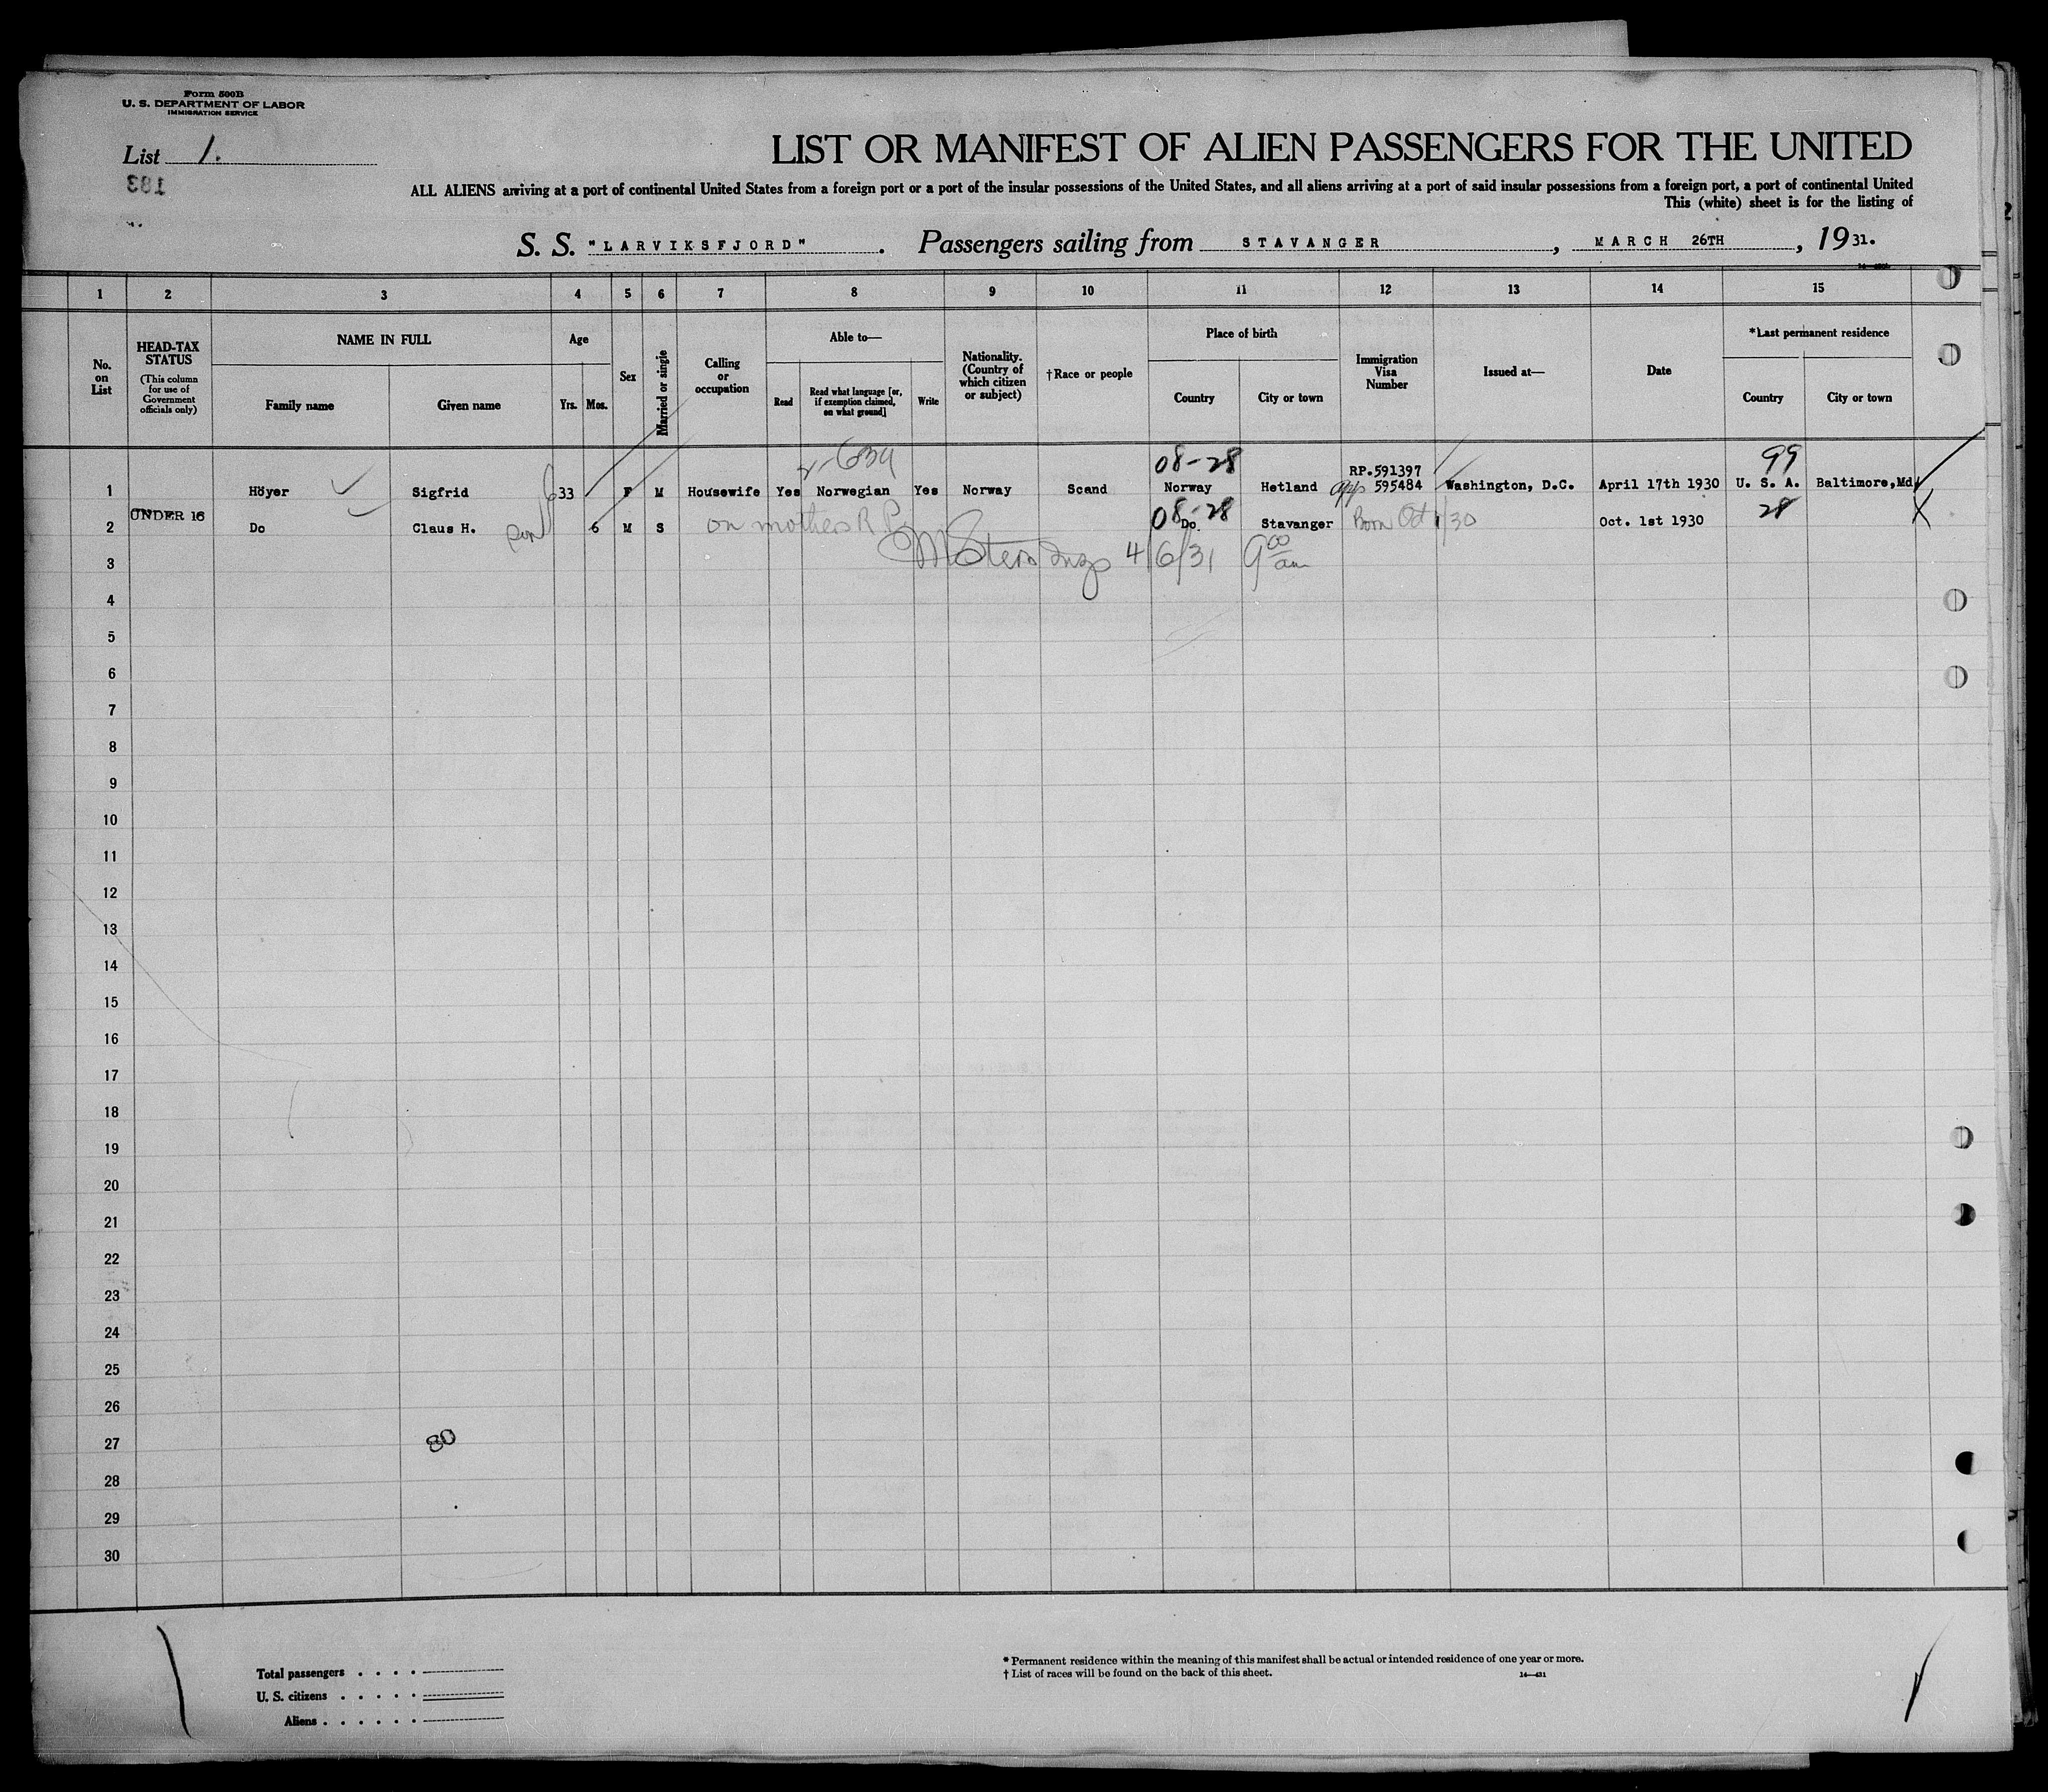 Form 500B
U. S. DEPARTMENT OF LABOR
IMMIGRATION SERVICE
List 1.
183
LIST OR MANIFEST OF ALIEN PASSENGERS FOR THE UNITED
ALL ALIENS arriving at a port of continental United States from a foreign port or a port of the insular possessions of the United States, and all aliens arriving at a port of said insular possessions from a foreign port, a port of continental United
This (white) sheet is for the listing of
S. S. "LARVIKSFJORD". Passengers sailing from STAVANGER, MARCH 26TH, 1931.
1 2 3 4 5 6 7 8 9 10 11 12 13 14 15
No. on List
HEAD-TAX STATUS
(This column for use of Government officials only)
NAME IN FULL
Family name Given name
Age
Yrs. Mos.
Sex
Married or single
Calling or occupation
Able to—
Read
Read what language [or, if exemption claimed, on what ground]
Write
Nationality. (Country of which citizen or subject)
†Race or people
Place of birth
Country City or town
Immigration Visa Number
Issued at—
Date
*Last permanent residence
Country City or town
08-28 99
RP.591397
1 Höyer Sigfrid 33 F M Housewife Yes Norwegian Yes Norway Scand Norway Hetland app 595484 Washington, D.C. April 17th 1930 U. S. A. Baltimore,Md.
UNDER 16
08-28 28
2 Do Claus H. son 6 M S on mothers R.P. Do. Stavanger Born Oct 1/30 Oct. 1st 1930 X
3 Stern Insp 4/6/31 9 00 am
4
5
6
7
8
9
10
11
12
13
14
15
16
17
18
19
20
21
22
23
24
25
26
27 80
28
29
30
Total passengers . . . .
U. S. citizens . . . . .
Aliens . . . . . .
* Permanent residence within the meaning of this manifest shall be actual or intended residence of one year or more.
† List of races will be found on the back of this sheet.
14—431